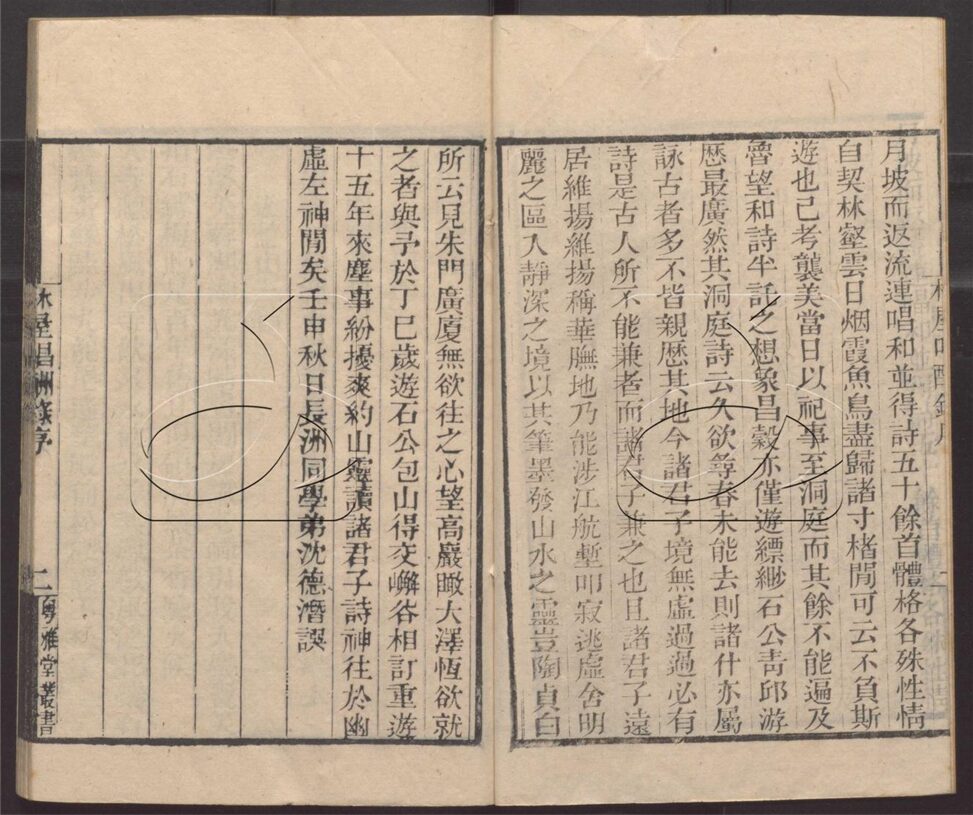 月坡而返流連唱和並得詩五十餘首體格各殊性情
自契林壑雲日烟霞魚鳥盡歸諸寸楮閒可云不負斯
遊也已考襲美當日以祀事至洞庭而其餘不能遍及
魯望和詩半託之想象昌穀亦僅遊縹緲石公靑邱游
歷最廣然其洞庭詩云久欲尋春未能去則諸什亦屬
詠古者多不皆親歷其地今諸君子境無虛過過必有
詩是古人所不能兼者而諸君子兼之也且諸君子遠
居維揚維揚稱華膴地乃能涉江航塹叩寂逃虛舍明
麗之區入靜深之境以其筆墨發山水之靈豈陶貞白
所云見朱門廣廈無欲往之心望高巖瞰大澤恆欲就
之者與予於丁巳歲遊石公包山得交嶰谷相訂重遊
十五年來塵事紛擾爽約山靈讀諸君子詩神往於幽
虛左神閒矣壬申秋日長洲同學弟沈德潛譔
林屋唱酬錄序
二
粵雅堂叢書